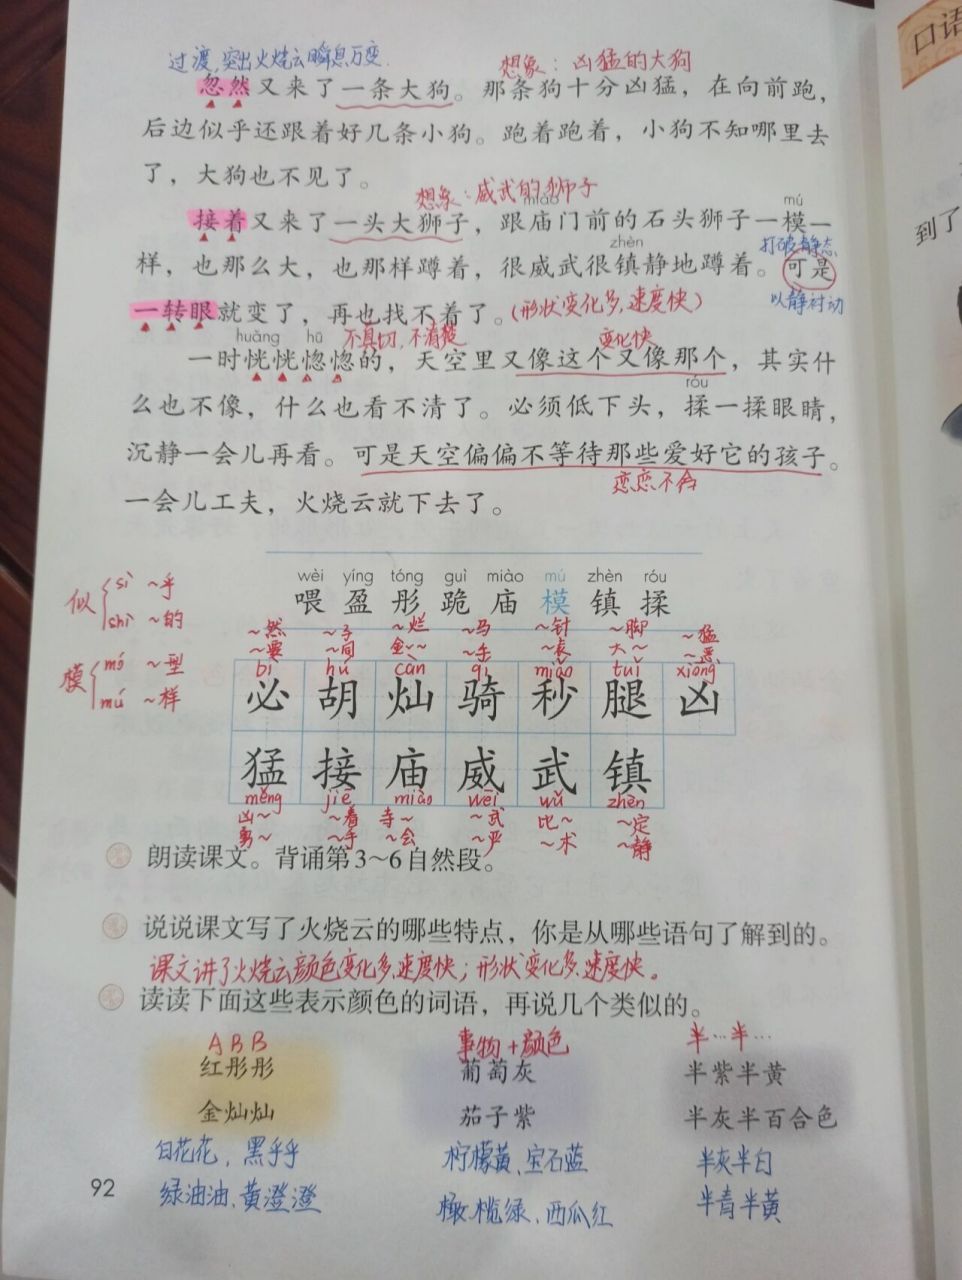 过渡,突出火烧云瞬息万变.
想象：凶猛的大狗
忽然又来了一条大狗。那条狗十分凶猛，在向前跑，
后边似乎还跟着好几条小狗。跑着跑着，小狗不知哪里去
了，大狗也不见了。
想象：威武的狮子
miào mú
接着又来了一头大狮子，跟庙门前的石头狮子一模一
zhèn 打破静态
样，也那么大，也那样蹲着，很威武很镇静地蹲着。可是
以静衬动
一转眼就变了，再也找不着了。(形状变化多,速度快)
huǎng hū 不真切,不清楚 变化快
一时恍恍惚惚的，天空里又像这个又像那个，其实什
róu
么也不像，什么也看不清了。必须低下头，揉一揉眼睛，
沉静一会儿再看。可是天空偏偏不等待那些爱好它的孩子。
恋恋不舍
一会儿工夫，火烧云就下去了。
wèi yíng tóng guì miào mú zhèn róu
喂 盈 彤 跪 庙 模 镇 揉
似 sì ~乎
shì ~的
模 mó ~型
mú ~样
~然 ~子 ~烂 ~马 ~针 ~脚 ~猛
~要 ~同 金~~ ~车 ~表 大~ ~恶
bì hú càn qí miǎo tuǐ xiōng
必 胡 灿 骑 秒 腿 凶
猛 接 庙 威 武 镇
měng jiē miào wēi wǔ zhèn
凶~ ~着 寺~ ~武 比~ ~定
勇~ ~手 ~会 ~严 ~术 ~静
朗读课文。背诵第3~6自然段。
说说课文写了火烧云的哪些特点，你是从哪些语句了解到的。
课文讲了火烧云颜色变化多,速度快；形状变化多,速度快。
读读下面这些表示颜色的词语，再说几个类似的。
ABB 事物+颜色 半…半…
红彤彤 葡萄灰 半紫半黄
金灿灿 茄子紫 半灰半百合色
白花花，黑乎乎 柠檬黄、宝石蓝 半灰半白
绿油油、黄澄澄 橄榄绿、西瓜红 半青半黄
92
口语
到了